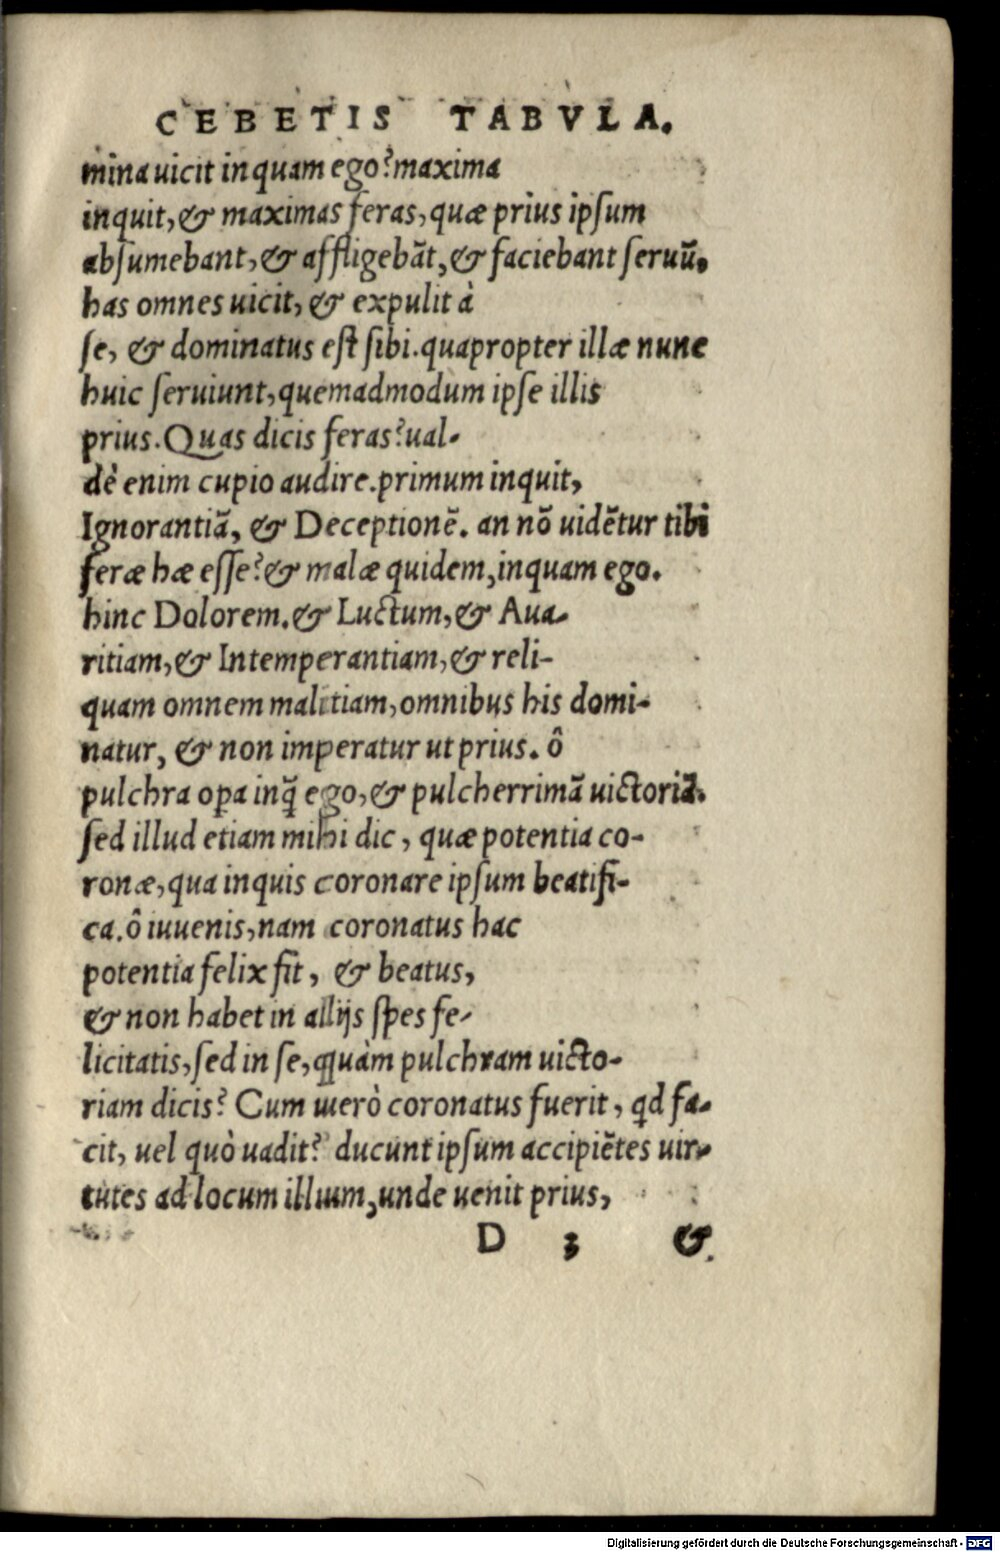 CEBETIS TABVLA.
mina uicit inquam ego? maxima
inquit, & maximas feras, quæ prius ipſum
abſumebant, & affligebāt, & faciebant ſeruū.
has omnes uicit, & expulit à
ſe, & dominatus eſt ſibi. quapropter illæ nunc
huic ſeruiunt, quemadmodum ipſe illis
prius. Quas dicis feras? ual-
dè enim cupio audire. primum inquit,
Ignorantiā, & Deceptionē. an nō uidētur tibi
feræ hæ eſſe? & malæ quidem, inquam ego.
hinc Dolorem. & Luctum, & Aua-
ritiam, & Intemperantiam, & reli-
quam omnem malitiam, omnibus his domi-
natur, & non imperatur ut prius. ô
pulchra oꝑa inq̃ ego, & pulcherrimā uictoriā.
ſed illud etiam mihi dic, quæ potentia co-
ronæ, qua inquis coronare ipſum beatifi-
ca. ô iuuenis, nam coronatus hac
potentia felix fit, & beatus,
& non habet in alijs ſpes fe-
licitatis, ſed in ſe, quàm pulchram uicto-
riam dicis? Cum uerò coronatus fuerit, qd fa-
cit, uel quò uadit? ducunt ipſum accipiētes uir-
tutes ad locum illum, unde uenit prius,
D 3 &
Digitalisierung gefördert durch die Deutsche Forschungsgemeinschaft - DFG